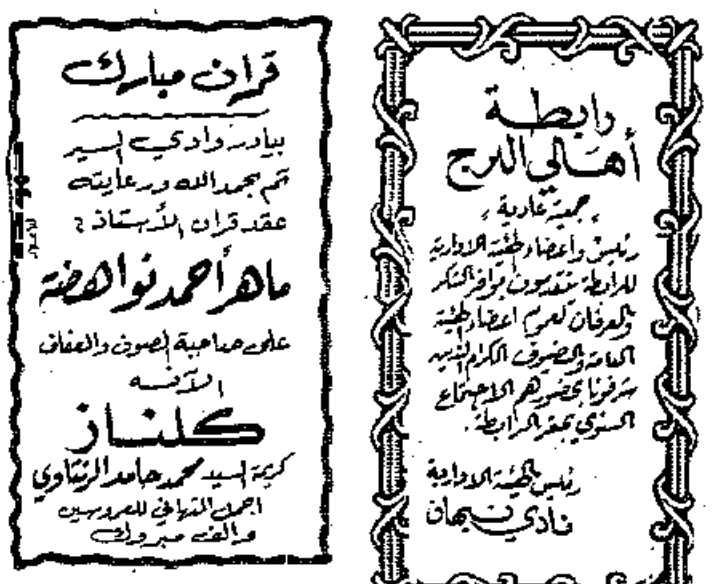 رابطة
أهالي البرج
جمعية عادية
رئيس واعضاء الهيئة الادارية
للرابطة يتقدمون بوافر الشكر
والعرفان لعموم اعضاء الهيئة
العامة والضيوف الكرام الذين
شرفونا بحضورهم الاجتماع
السنوي بمقر الرابطة.
رئيس الهيئة الادارية
نادي نبهان
قران مبارك
بيادر وادي السير
تم بحمد الله ورعايته
عقد قران الأستاذ
ماهر أحمد نواهضة
على صاحبة الصون والعفاف
الآنسة
كلناز
كريمة السيد محمد حامد الرنتاوي
اجمل التهاني للعروسين
والف مبروك